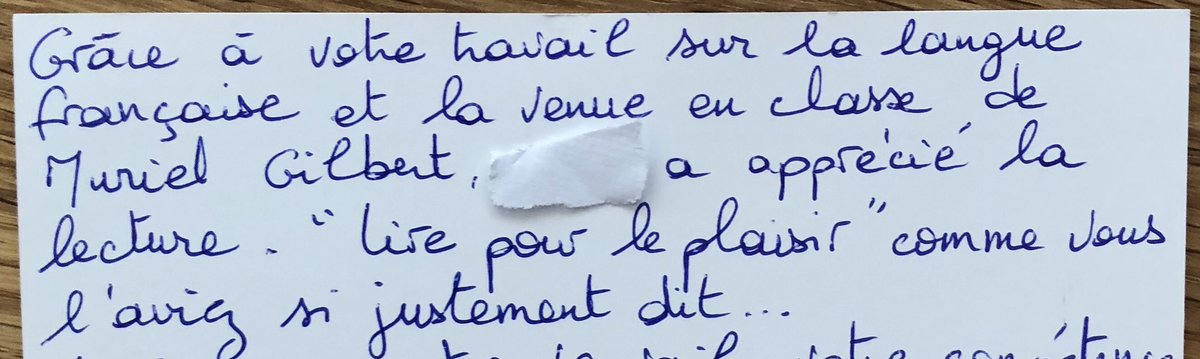 Grâce à votre travail sur la langue
française et la venue en classe de
Muriel Gilbert, a apprécié la
lecture. "lire pour le plaisir" comme vous
l'aviez si justement dit...
votre compétence